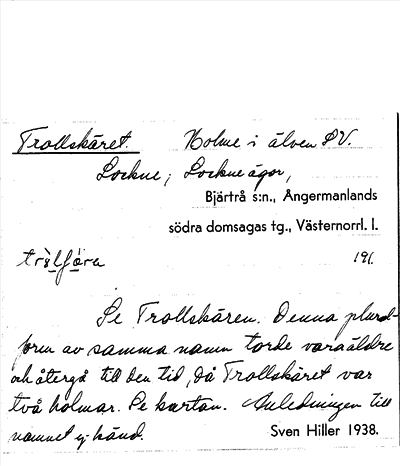 Trollskäret. Holme i älven SV.
Lockne; Lockne ägor,
Bjärtrå s:n., Ångermanlands
södra domsagas tg., Västernorrl. l.
191.
Se Trollskären. Denna plural-
form av samma namn torde vara äldre
och återgå till den tid, då Trollskäret var
två holmar. Se kartan. Anledningen till
namnet ej känd.
Sven Hiller 1938.